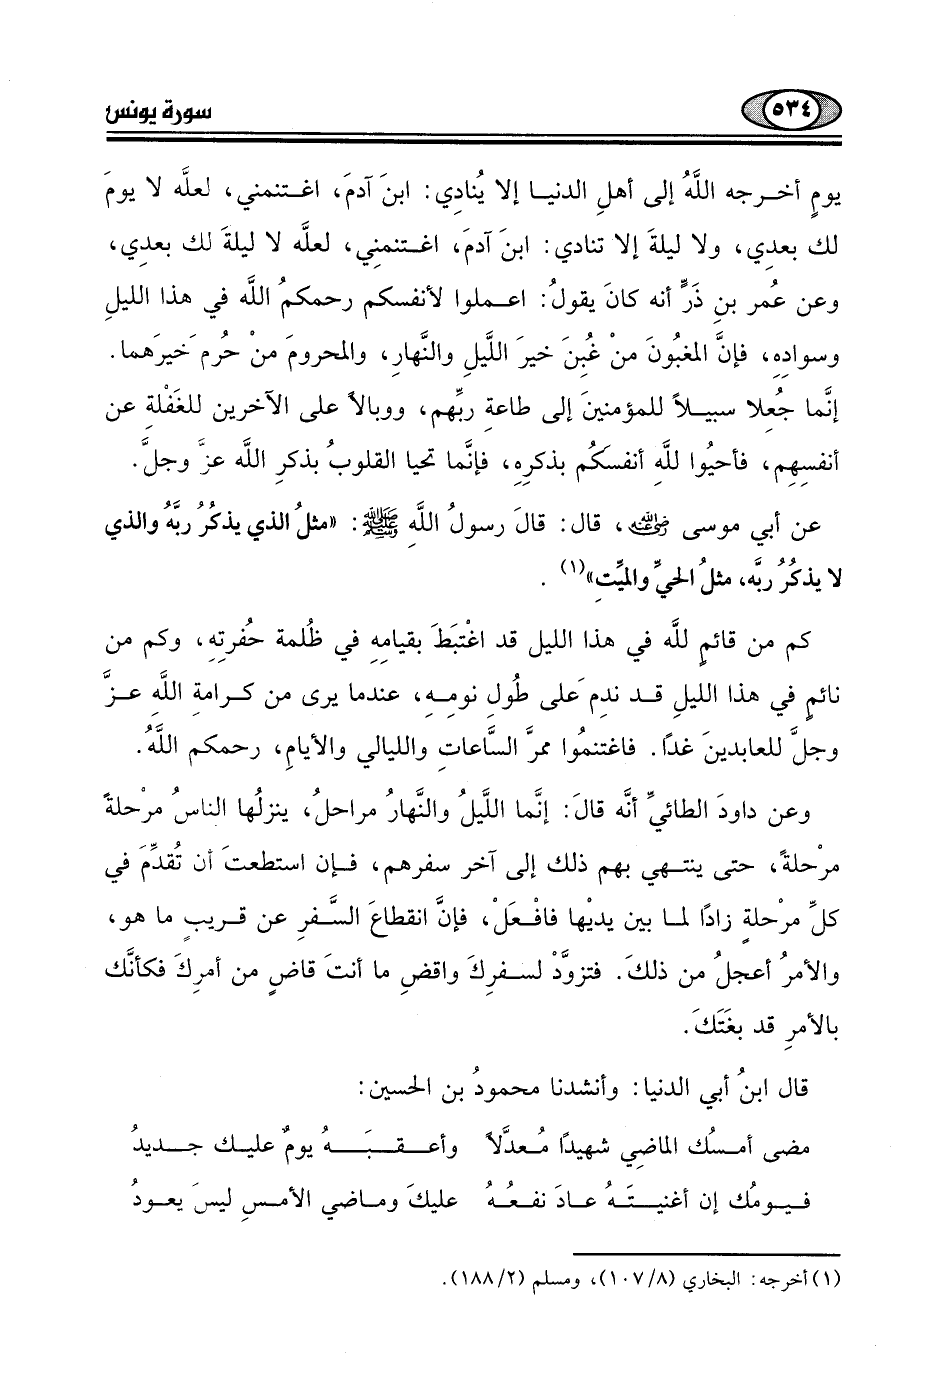 ٥٣٤
سورة يونس
يومٍ أخرجه اللَّهُ إلى أهلِ الدنيا إلا يُنادِي: ابنَ آدمَ، اغتنمني، لعلَّه لا يومَ
لك بعدِي، ولا ليلةَ إلا تنادي: ابنَ آدمَ، اغتنمنِي، لعلَّه لا ليلةَ لك بعدِي،
وعن عُمر بنِ ذَرٍّ أنه كانَ يقولُ: اعملوا لأنفسكم رحمكمُ اللَّه في هذا الليلِ
وسوادِهِ، فإنَّ المغبُونَ منْ غُبنَ خيرَ اللَّيلِ والنَّهارِ، والمحرومَ منْ حُرم خيرَهما.
إنَّما جُعلا سبيلاً للمؤمنينَ إلى طاعةِ ربِّهم، ووبالاً على الآخرين للغَفْلة عن
أنفسِهِم، فأحيُوا للَّهِ أنفسكُم بذكرِهِ، فإنَّما تحيا القلوبُ بذكرِ اللَّه عزَّ وجلَّ.
عن أبي موسى رضي الله عنه، قال: قالَ رسولُ اللَّهِ ﷺ: «مثلُ الذي يذكُرُ ربَّهُ والذي
لا يذكُرُ ربَّه، مثلُ الحيِّ والميِّتِ»(١) .
كم من قائمٍ للَّه في هذا الليل قد اغْتبَطَ بقيامِهِ في ظُلمة حُفرتِهِ، وكم من
نائمٍ في هذا الليلِ قد ندمَ على طُولِ نومِهِ، عندما يرى من كرامةِ اللَّهِ عزَّ
وجلَّ للعابدينَ غدًا. فاغتنمُوا ممرَّ السَّاعاتِ والليالي والأيامِ، رحمكم اللَّهُ.
وعن داودَ الطائيِّ أنَّه قالَ: إنَّما اللَّيلُ والنَّهارُ مراحلُ، ينزلُها الناسُ مرْحلةً
مرْحلةً، حتى ينتهي بهم ذلك إلى آخر سفرهم، فإن استطعتَ أن تُقدِّمَ في
كلِّ مرْحلةٍ زادًا لما بين يديْها فافْعَلْ، فإنَّ انقطاعَ السَّفرِ عن قريبٍ ما هو،
والأمرُ أعجلُ من ذلكَ. فتزوَّدْ لسفركَ واقضِ ما أنتَ قاضٍ من أمركَ فكأنَّك
بالأمرِ قد بغَتَكَ.
قال ابنُ أبي الدنيا: وأنشدنا محمودُ بن الحسين:
مضى أمسُك الماضِي شهيدًا مُعدَّلاً وأعقبَهُ يومٌ عليك جديدُ
فيومُك إن أغنيتَهُ عادَ نفعُهُ عليكَ وماضي الأمسِ ليسَ يعودُ
(١) أخرجه: البخاري (١٠٧/٨)، ومسلم (١٨٨/٢).